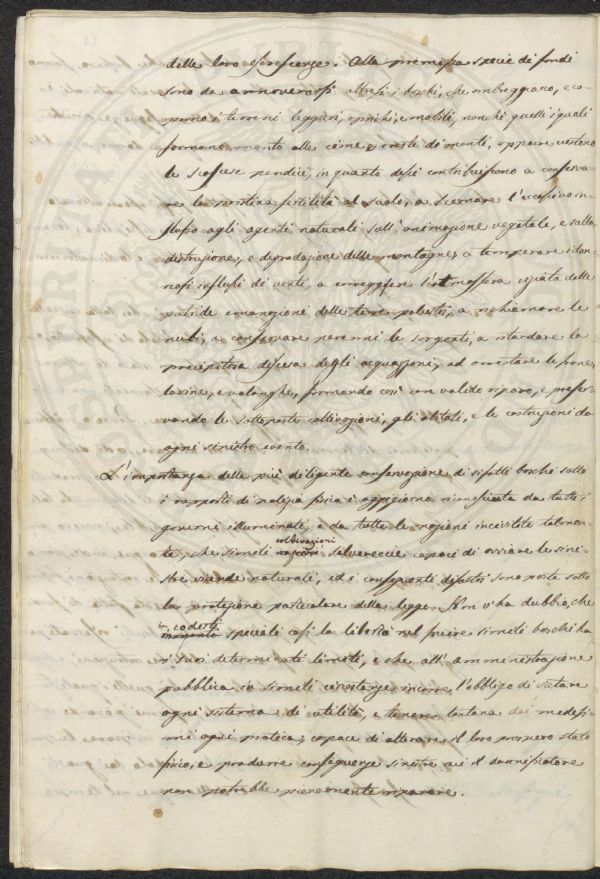 delle loro escrescenze. Alla premessa specie di fondi
sono da annoverarsi altresì i boschi, che ombreggiano, e co-
prono i terreni leggieri, opachi, e mobili, nonchè quelli i quali
formano manto alle cime, e creste di monti, oppure vestono
le scoscese pendici, in quanto dessi contribuiscono a conserva-
re la pristina fertilità al suolo, a scemare l'eccessivo in-
flusso agli agenti naturali sull'animazione vegetale, e sulla
distruzione, e degradazione delle montagne, a temperare i dan-
nosi influssi de' venti, a correggere l'atmosfera viziata dalle
putride emanazioni delle terre palustri, a richiamare le
nubi, a conservare perenni le sorgenti, a ritardare la
precipitosa discesa degli acquazzoni, ad arrestare le frane,
lavine, e valanghe, formando così un valido riparo, e preser-
vando le sottoposte coltivazioni, gli abitati, e le costruzioni da
ogni sinistro evento.
L'importanza della più diligente conservazione di siffatti boschi sotto
i rapporti di polizia fisica è oggigiorno riconosciuta da tutti i
governi illuminati, e da tutte le nazioni incivilite talmen-
te, che simili coltivazioni salvereccie capaci di ovviare le sini-
stre vicende naturali, ed i conseguenti disastri sono poste sotto
la protezione particolare della legge. Non v'ha dubbio, che
in codesti speciali casi la libertà nel fruire simili boschi ha
i suoi determinati limiti, e che all'amministrazione
pubblica in simili circostanze incorre l'obbligo di vietare
ogni sistema di utilità, e tenere lontana dai medesi-
mi ogni pratica, capace di alterare il loro prospero stato
fisico, e produrre conseguenze sinistre cui il dannificatore
non potrebbe pienamente riparare.